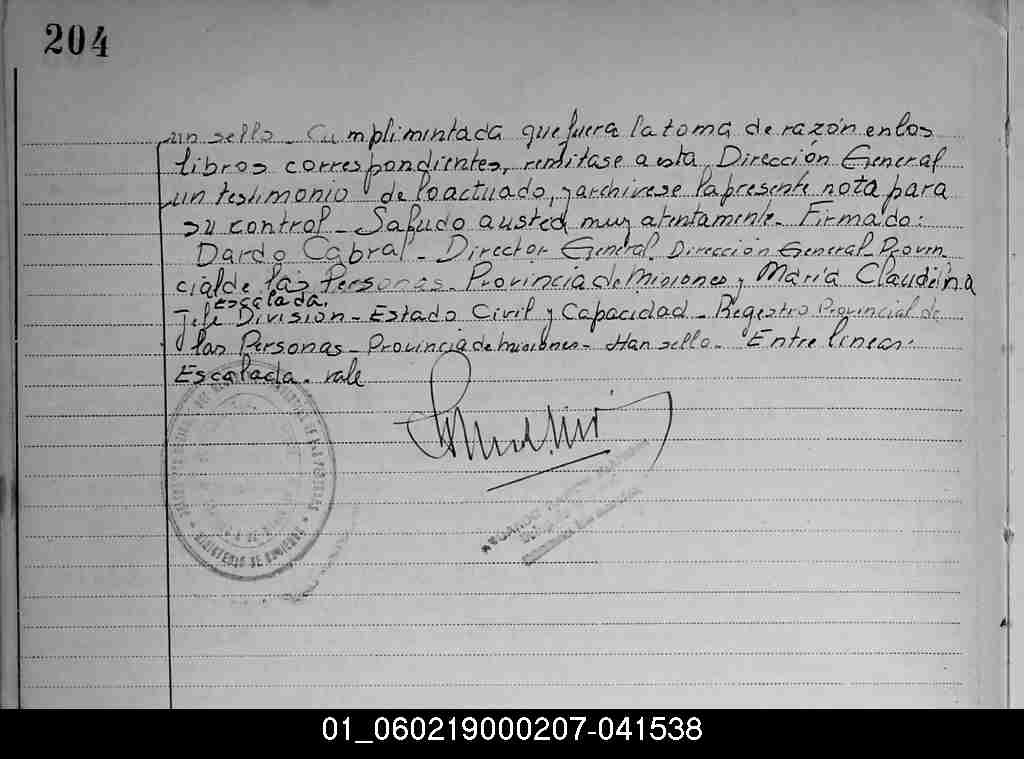 204
un sello - Cumplimintada que fuera la toma de razón en los
libros correspondientes, remitase a esta Dirección General
un testimonio de lo actuado, y archivese la presente nota para
su control - Saludo a usted muy atentamente - Firmado:
Dardo Cabral - Director General. Dirección General Provin
cial de las Personas - Provincia de Misiones y María Claudelina
escalada.
Jefe División - Estado Civil y Capacidad - Registro Provincial de
las Personas - Provincia de Misiones - Han sello - Entre lineas:
Escalada - vale
MINISTERIO DE GOBIERNO
01_060219000207-041538